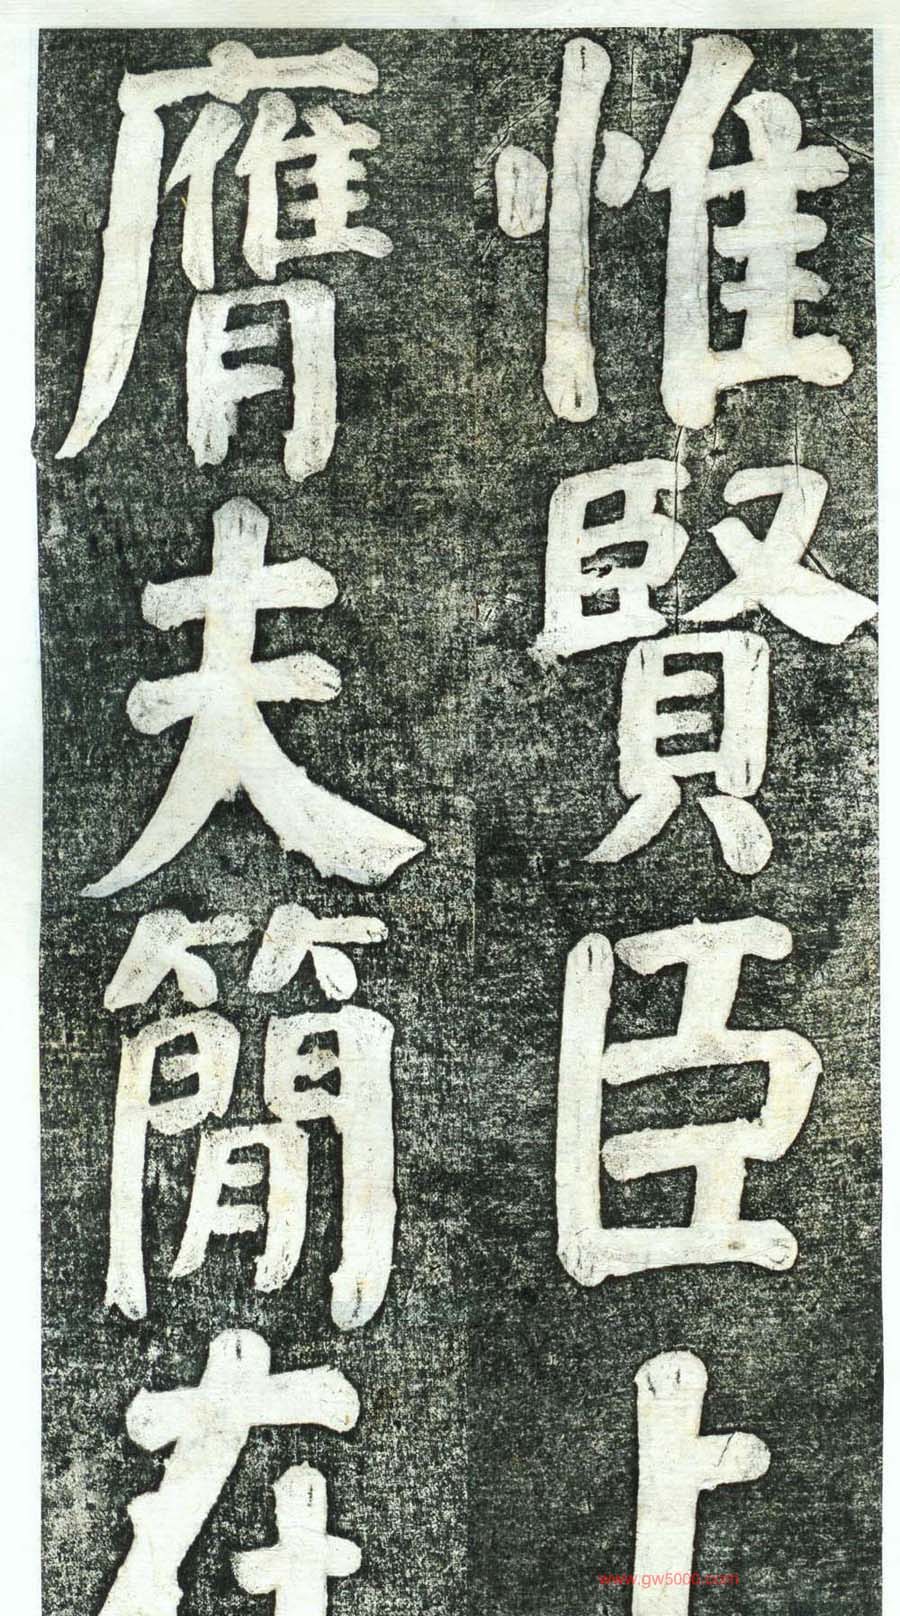 惟賢臣上
膺夫簡在
www.gw5000.com